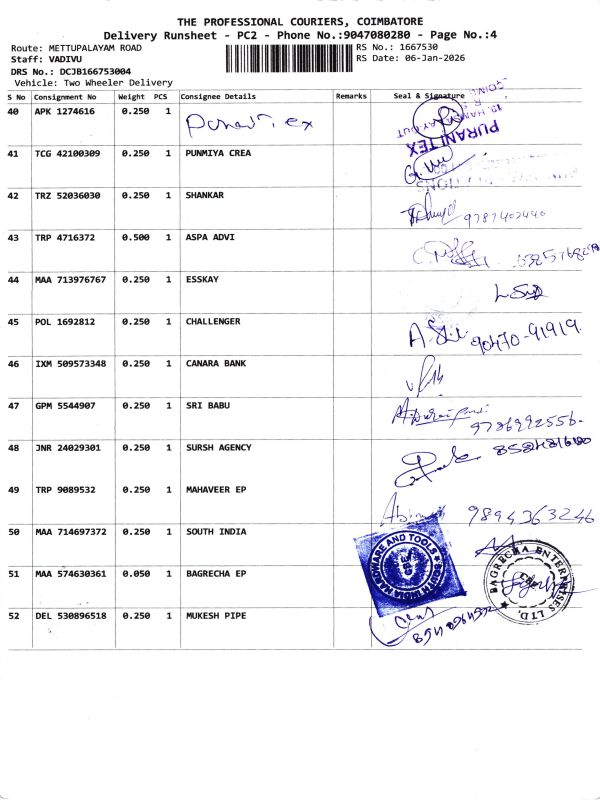 THE PROFESSIONAL COURIERS, COIMBATORE
Delivery Runsheet - PC2 - Phone No.:9047080280 - Page No.:4
Route: METTUPALAYAM ROAD RS No.: 1667530
Staff: VADIVU RS Date: 06-Jan-2026
DRS No.: DCJB166753004
Vehicle: Two Wheeler Delivery
S No Consignment No Weight PCS Consignee Details Remarks Seal & Signature
40 APK 1274616 0.250 1 PURANI TEX
41 TCG 42100309 0.250 1 PUNMIYA CREA
42 TRZ 52036030 0.250 1 SHANKAR 9787402440
43 TRP 4716372 0.500 1 ASPA ADVI
44 MAA 713976767 0.250 1 ESSKAY
45 POL 1692812 0.250 1 CHALLENGER 90470-91919
46 IXM 509573348 0.250 1 CANARA BANK
47 GPM 5544907 0.250 1 SRI BABU
48 JNR 24029301 0.250 1 SURSH AGENCY
49 TRP 9089532 0.250 1 MAHAVEER EP 9894363246
50 MAA 714697372 0.250 1 SOUTH INDIA SOUTH INDIA HARDWARE AND TOOLS
51 MAA 574630361 0.050 1 BAGRECHA EP BAGRECHA ENTERPRISES LTD.
52 DEL 530896518 0.250 1 MUKESH PIPE